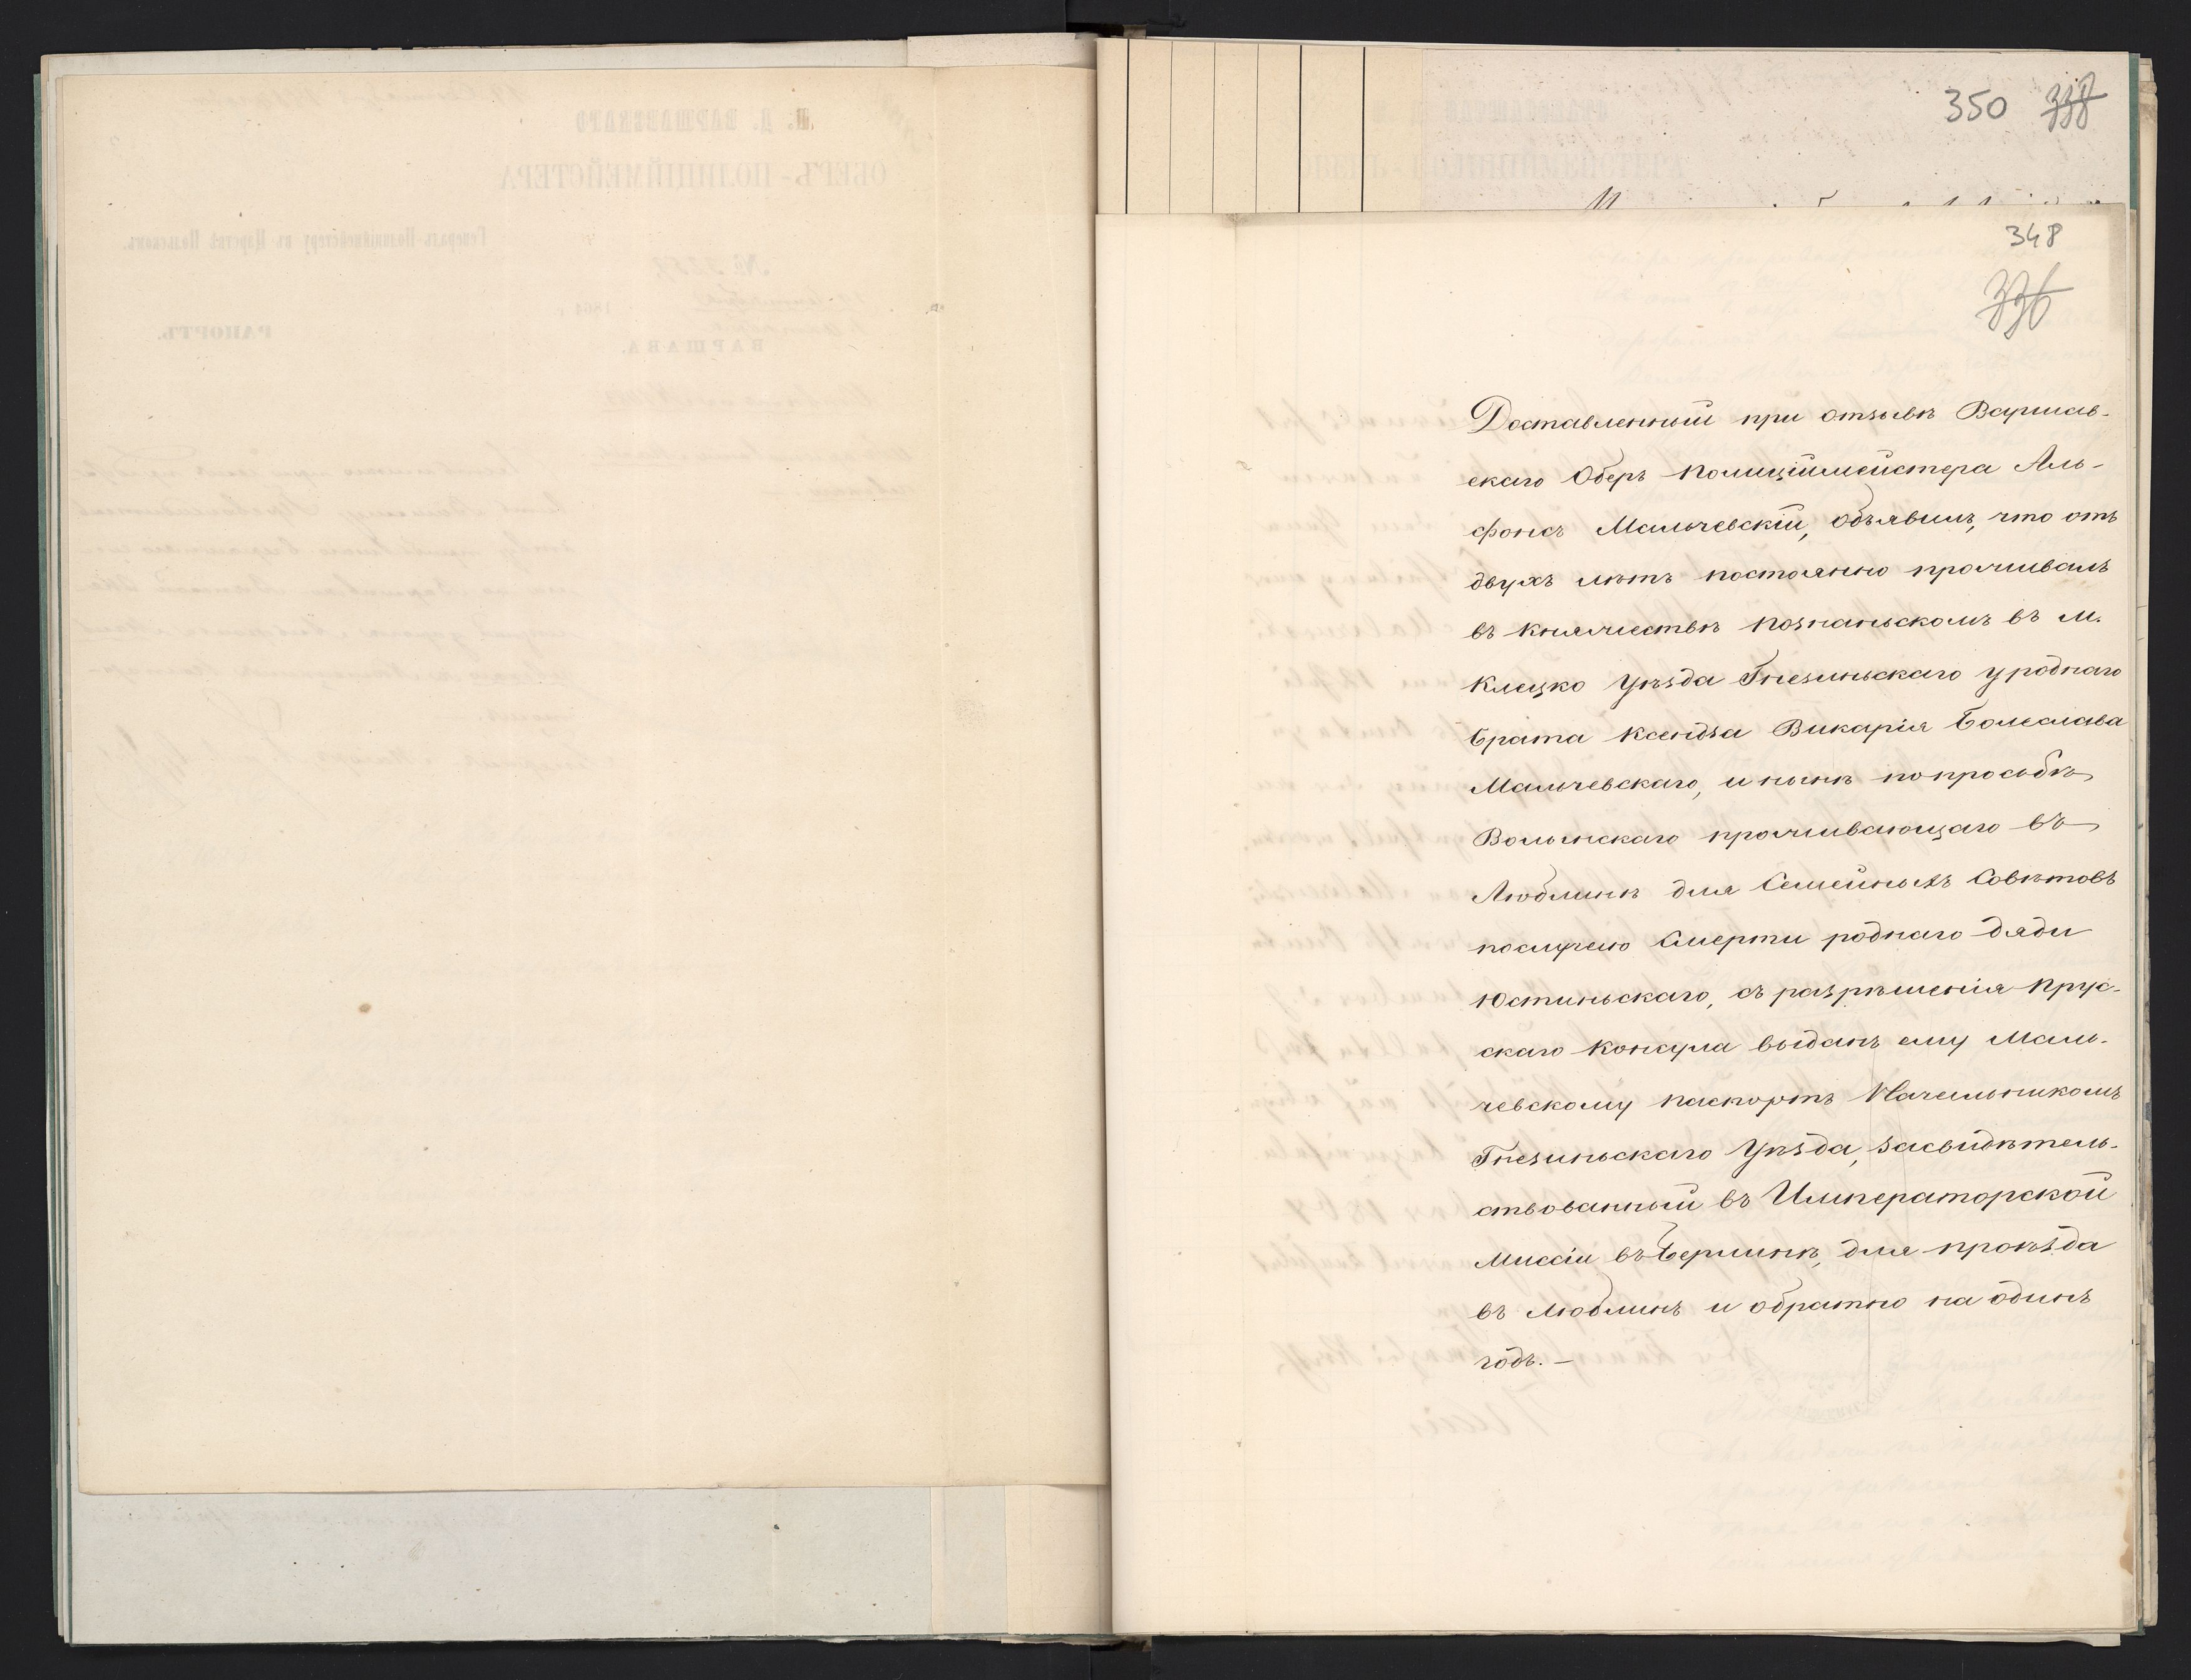 350 338
348
336
Доставленный при отзывѣ Варшав-
скаго Оберъ Полиціймейстера Аль-
фонсъ Мальчевскій, объявилъ, что отъ
двухъ лѣтъ постоянно проживалъ
въ Княжествѣ Познаньскомъ въ м.
Клецко Уѣзда Гнезиньскаго у роднаго
брата Ксендза Викарія Болеслава
Мальчевскаго, и нынѣ по просьбѣ
Волынскаго проживающаго въ
Люблинѣ для Семейныхъ Совѣтовъ
послучею Смерти роднаго дяди
Юстиньскаго, съ разрѣшенія Прус-
скаго Консула выданъ ему Маль-
чевскому паспортъ Начальникомъ
Гнезиньскаго Уѣзда, засвидѣтель-
ствованный въ Императорской
Миссіи въ Берлинѣ, для проѣзда
въ Люблинъ и обратно на одинъ
годъ. —